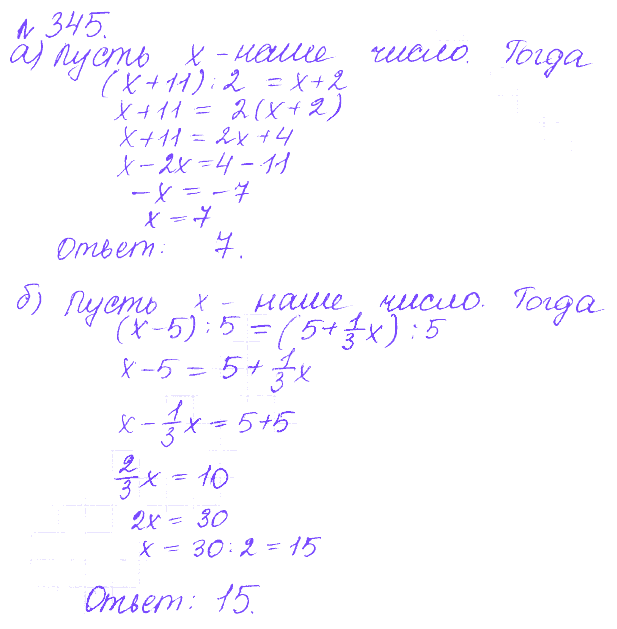 № 345.
а) Пусть x - наше число. Тогда
(x+11):2 = x+2
x+11 = 2(x+2)
x+11=2x+4
x-2x=4-11
-x = -7
x = 7
Ответ: 7.
б) Пусть x - наше число. Тогда
(x-5):5 = (5+1/3x):5
x-5 = 5+1/3x
x-1/3x = 5+5
2/3x = 10
2x = 30
x = 30:2 = 15
Ответ: 15.